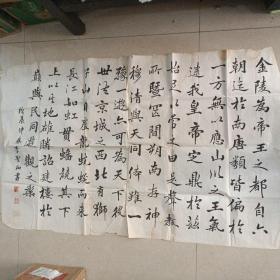 金陵為帝王之都自六
朝迄於南唐類皆偏於
一方無以應山川之王氣
逮我皇帝定鼎於茲
始足以當之由是聲教
所暨罔間朔南存神
穆清與天同體雖一
豫一遊亦可為天下後
世法京城之西北有獅
子山自盧龍蜿蜒而來
長江如虹貫蟠繞其下
上以其地雄勝詔建樓於
巔與民同遊觀之樂
辰仲秋 書